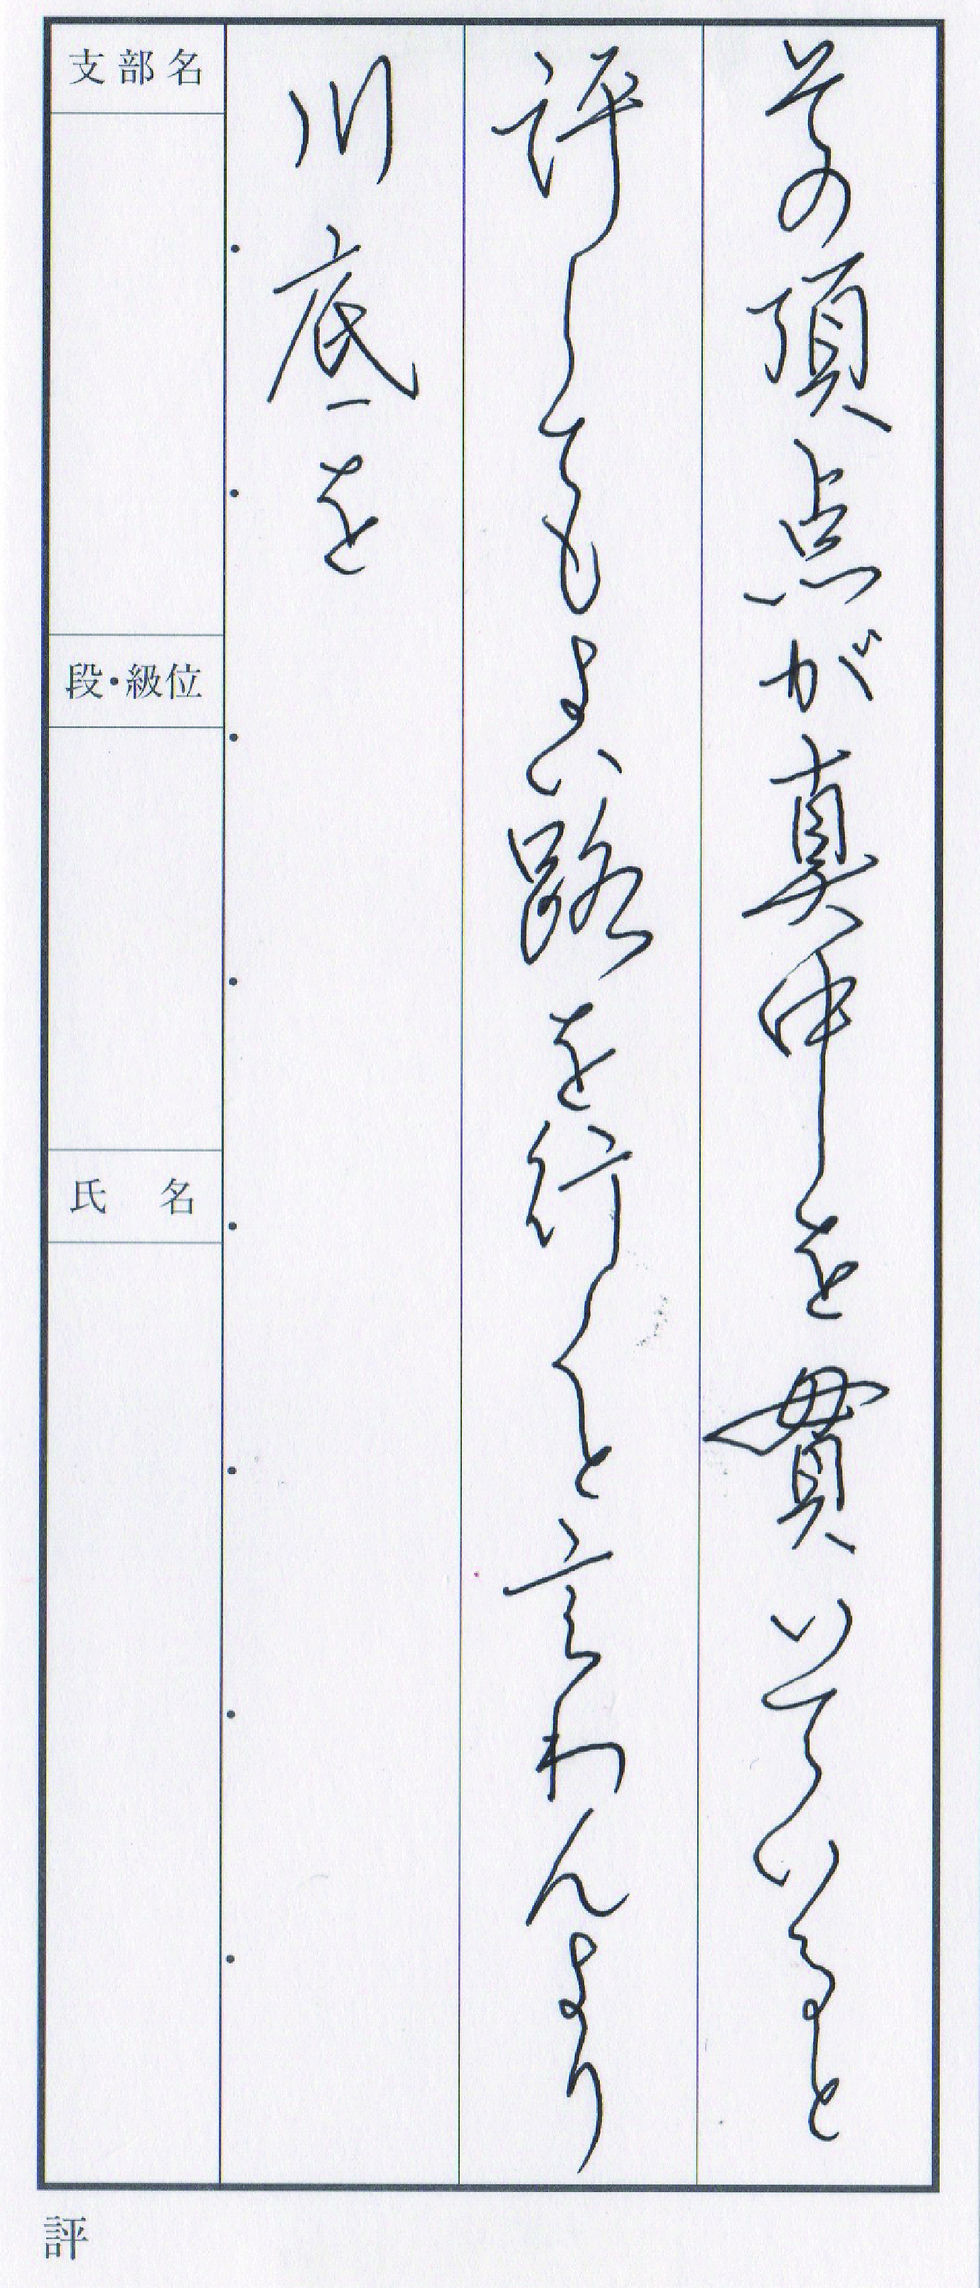 その頂点が真中を貫いていると
評してもよい路を行くと言わんより
川底を
支部名
段・級位
氏名
評